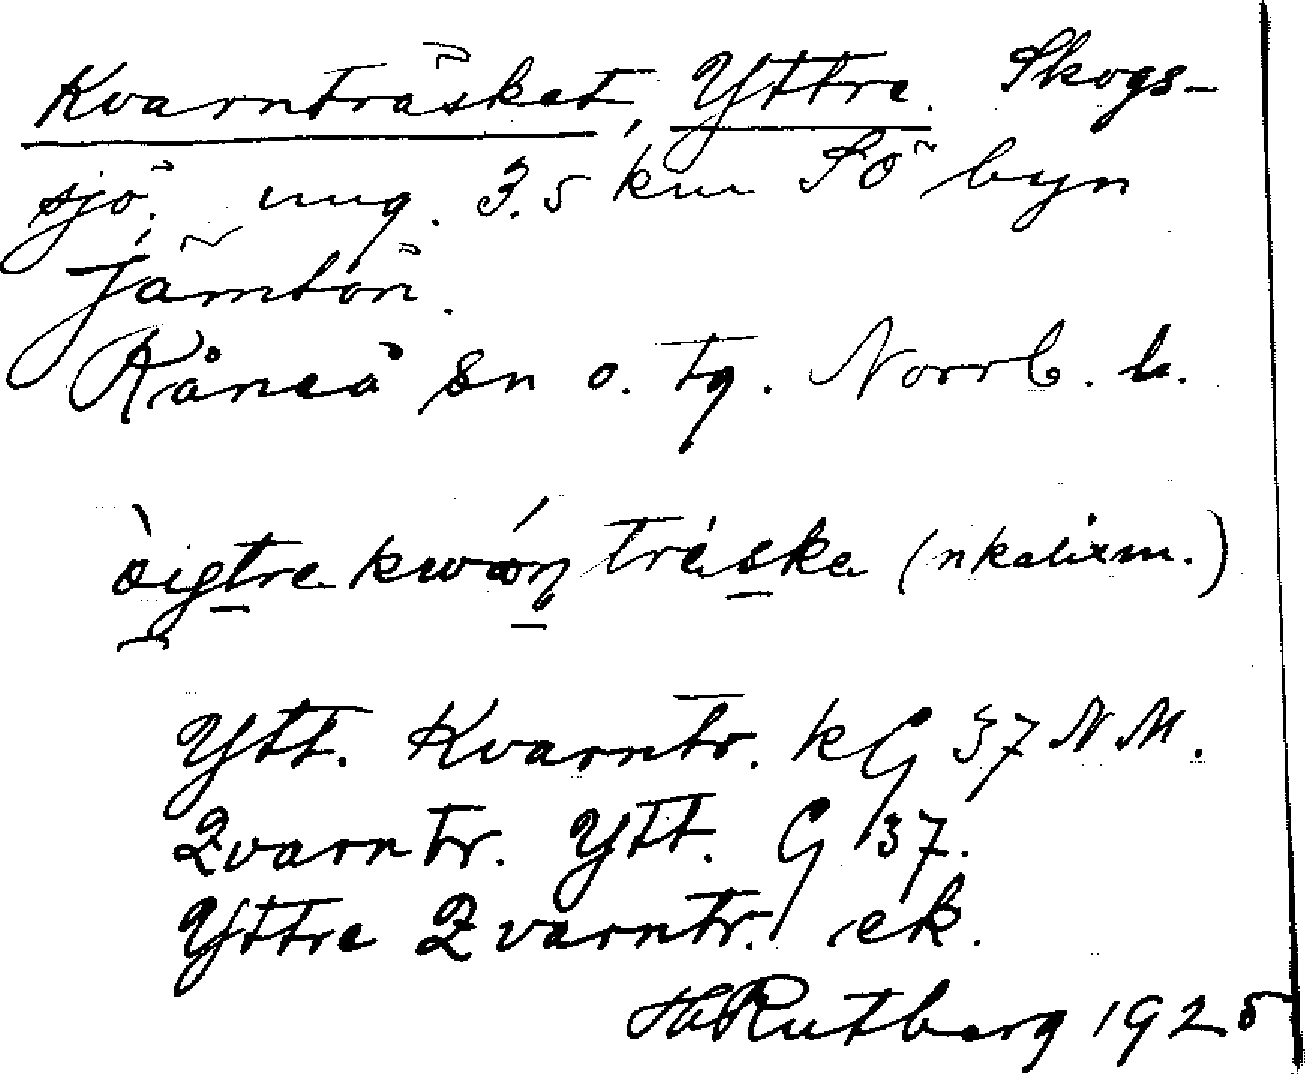 Kvarnträsket, Yttre. Skogs-
sjö. ung. 3.5 km SÖ byn
Jämtön.
Råneå sn o. tg. Norrb. l.
òigtre kwáṇ tráske (nkalixm.)
Ytt. Kvarntr. kG 37 N M.
Qvarntr. Ytt. G 37.
Yttre Qvarntr. ek.
Rutberg 1925